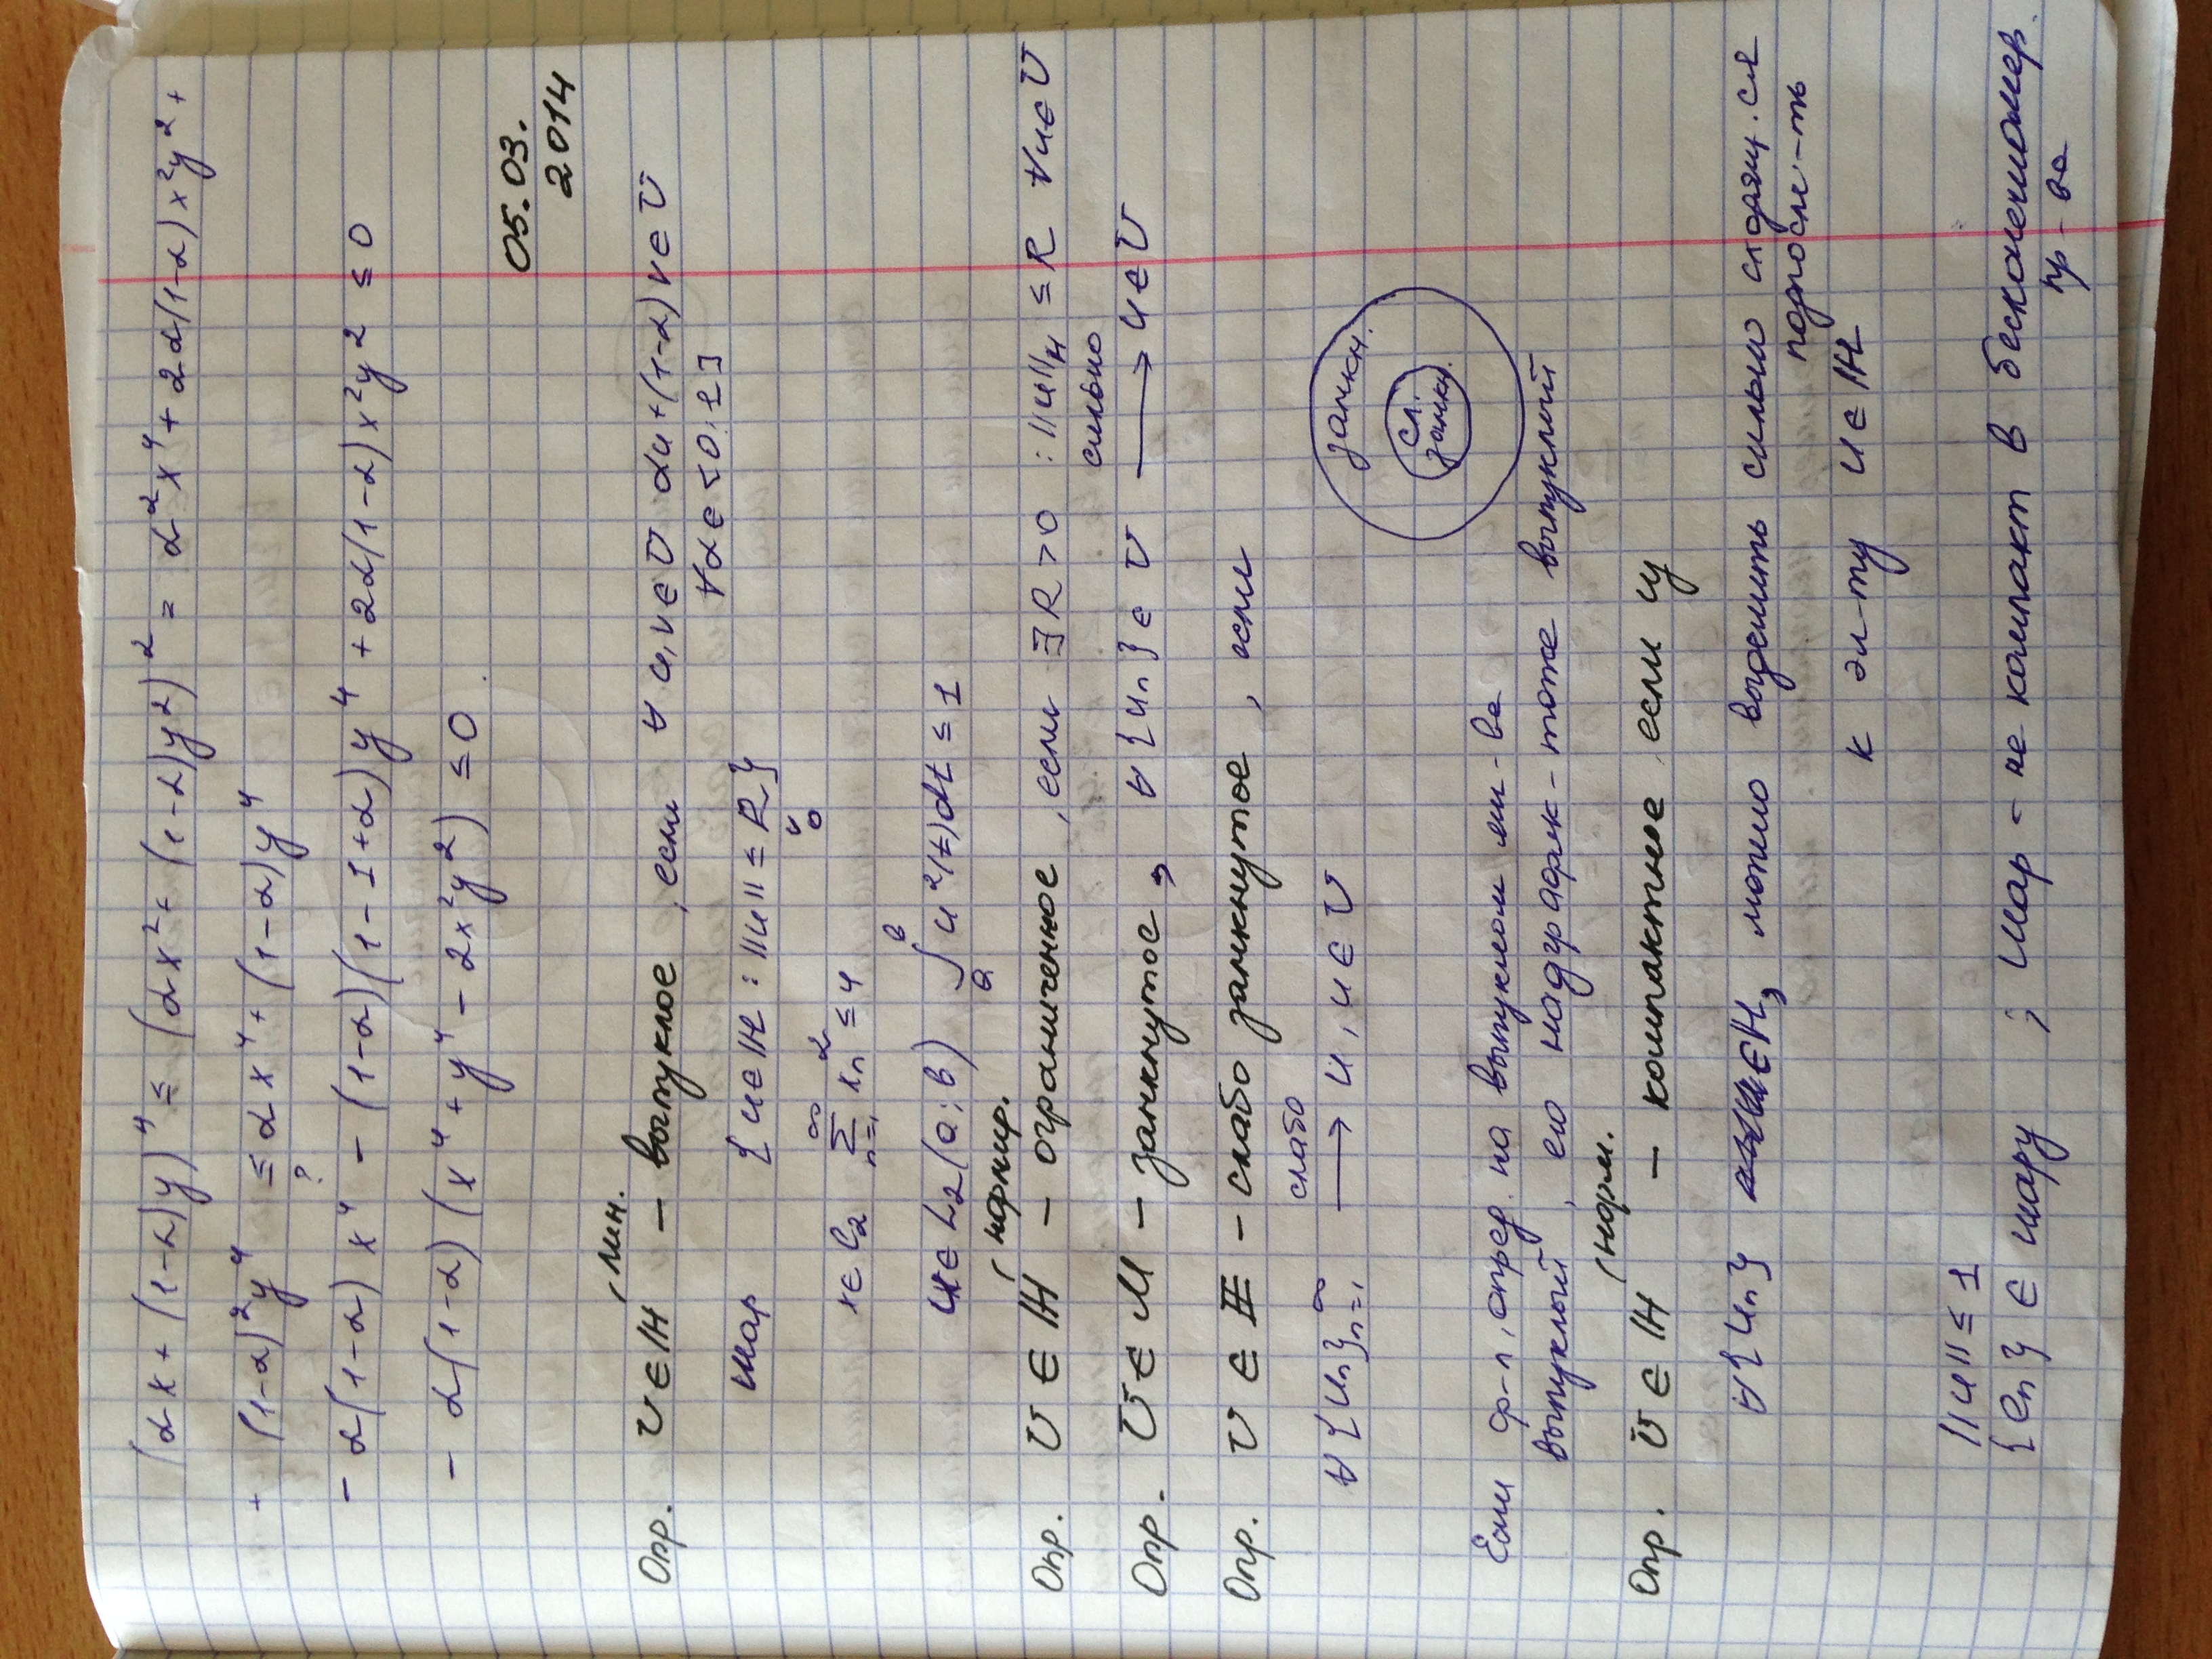 (αx + (1-α)y)⁴ ≤ (αx² + (1-α)y²)² = α²x⁴ + 2α(1-α)x²y² +
+ (1-α)²y⁴ ≤ αx⁴ + (1-α)y⁴
?
- α(1-α)x⁴ - (1-α)(1-1+α)y⁴ + 2α(1-α)x²y² ≤ 0
- α(1-α)(x⁴ + y⁴ - 2x²y²) ≤ 0
05.03.
2014
лин.
Опр. U ∈ H - выпуклое, если ∀ u,v ∈ U αu + (1-α)v ∈ U
∀α ∈ [0,1]
шар {u ∈ H : ||u|| ≤ R}
x ∈ l₂ ∑ₙ₌₁^∞ xₙ² ≤ 4
u ∈ L₂(a;b) ∫ₐᵇ u²(t)dt ≤ 1
нормир.
Опр. U ∈ H - ограниченное, если ∃R > 0 : ||u||_H ≤ R ∀u ∈ U
сильно
Опр. U ∈ M - замкнутое, ∀{uₙ} ∈ U → u ∈ U
Опр. U ∈ H - слабо замкнутое, если
слабо
∀{uₙ}ₙ₌₁^∞ → u, u ∈ U
замкн.
сл.
замкн.
Если ф-л, опред. на выпуклом мн-ве
выпуклый, его надграфик - тоже выпуклый
норм.
Опр. U ∈ H - компактное, если у
∀{uₙ} ∈ H, можно выделить сильно сходящ.ся
подпосл-ть
к эл-ту u ∈ H
||u|| ≤ 1
{eₙ} ∈ шару ; шар - не компакт в бесконечномер.
пр-ве